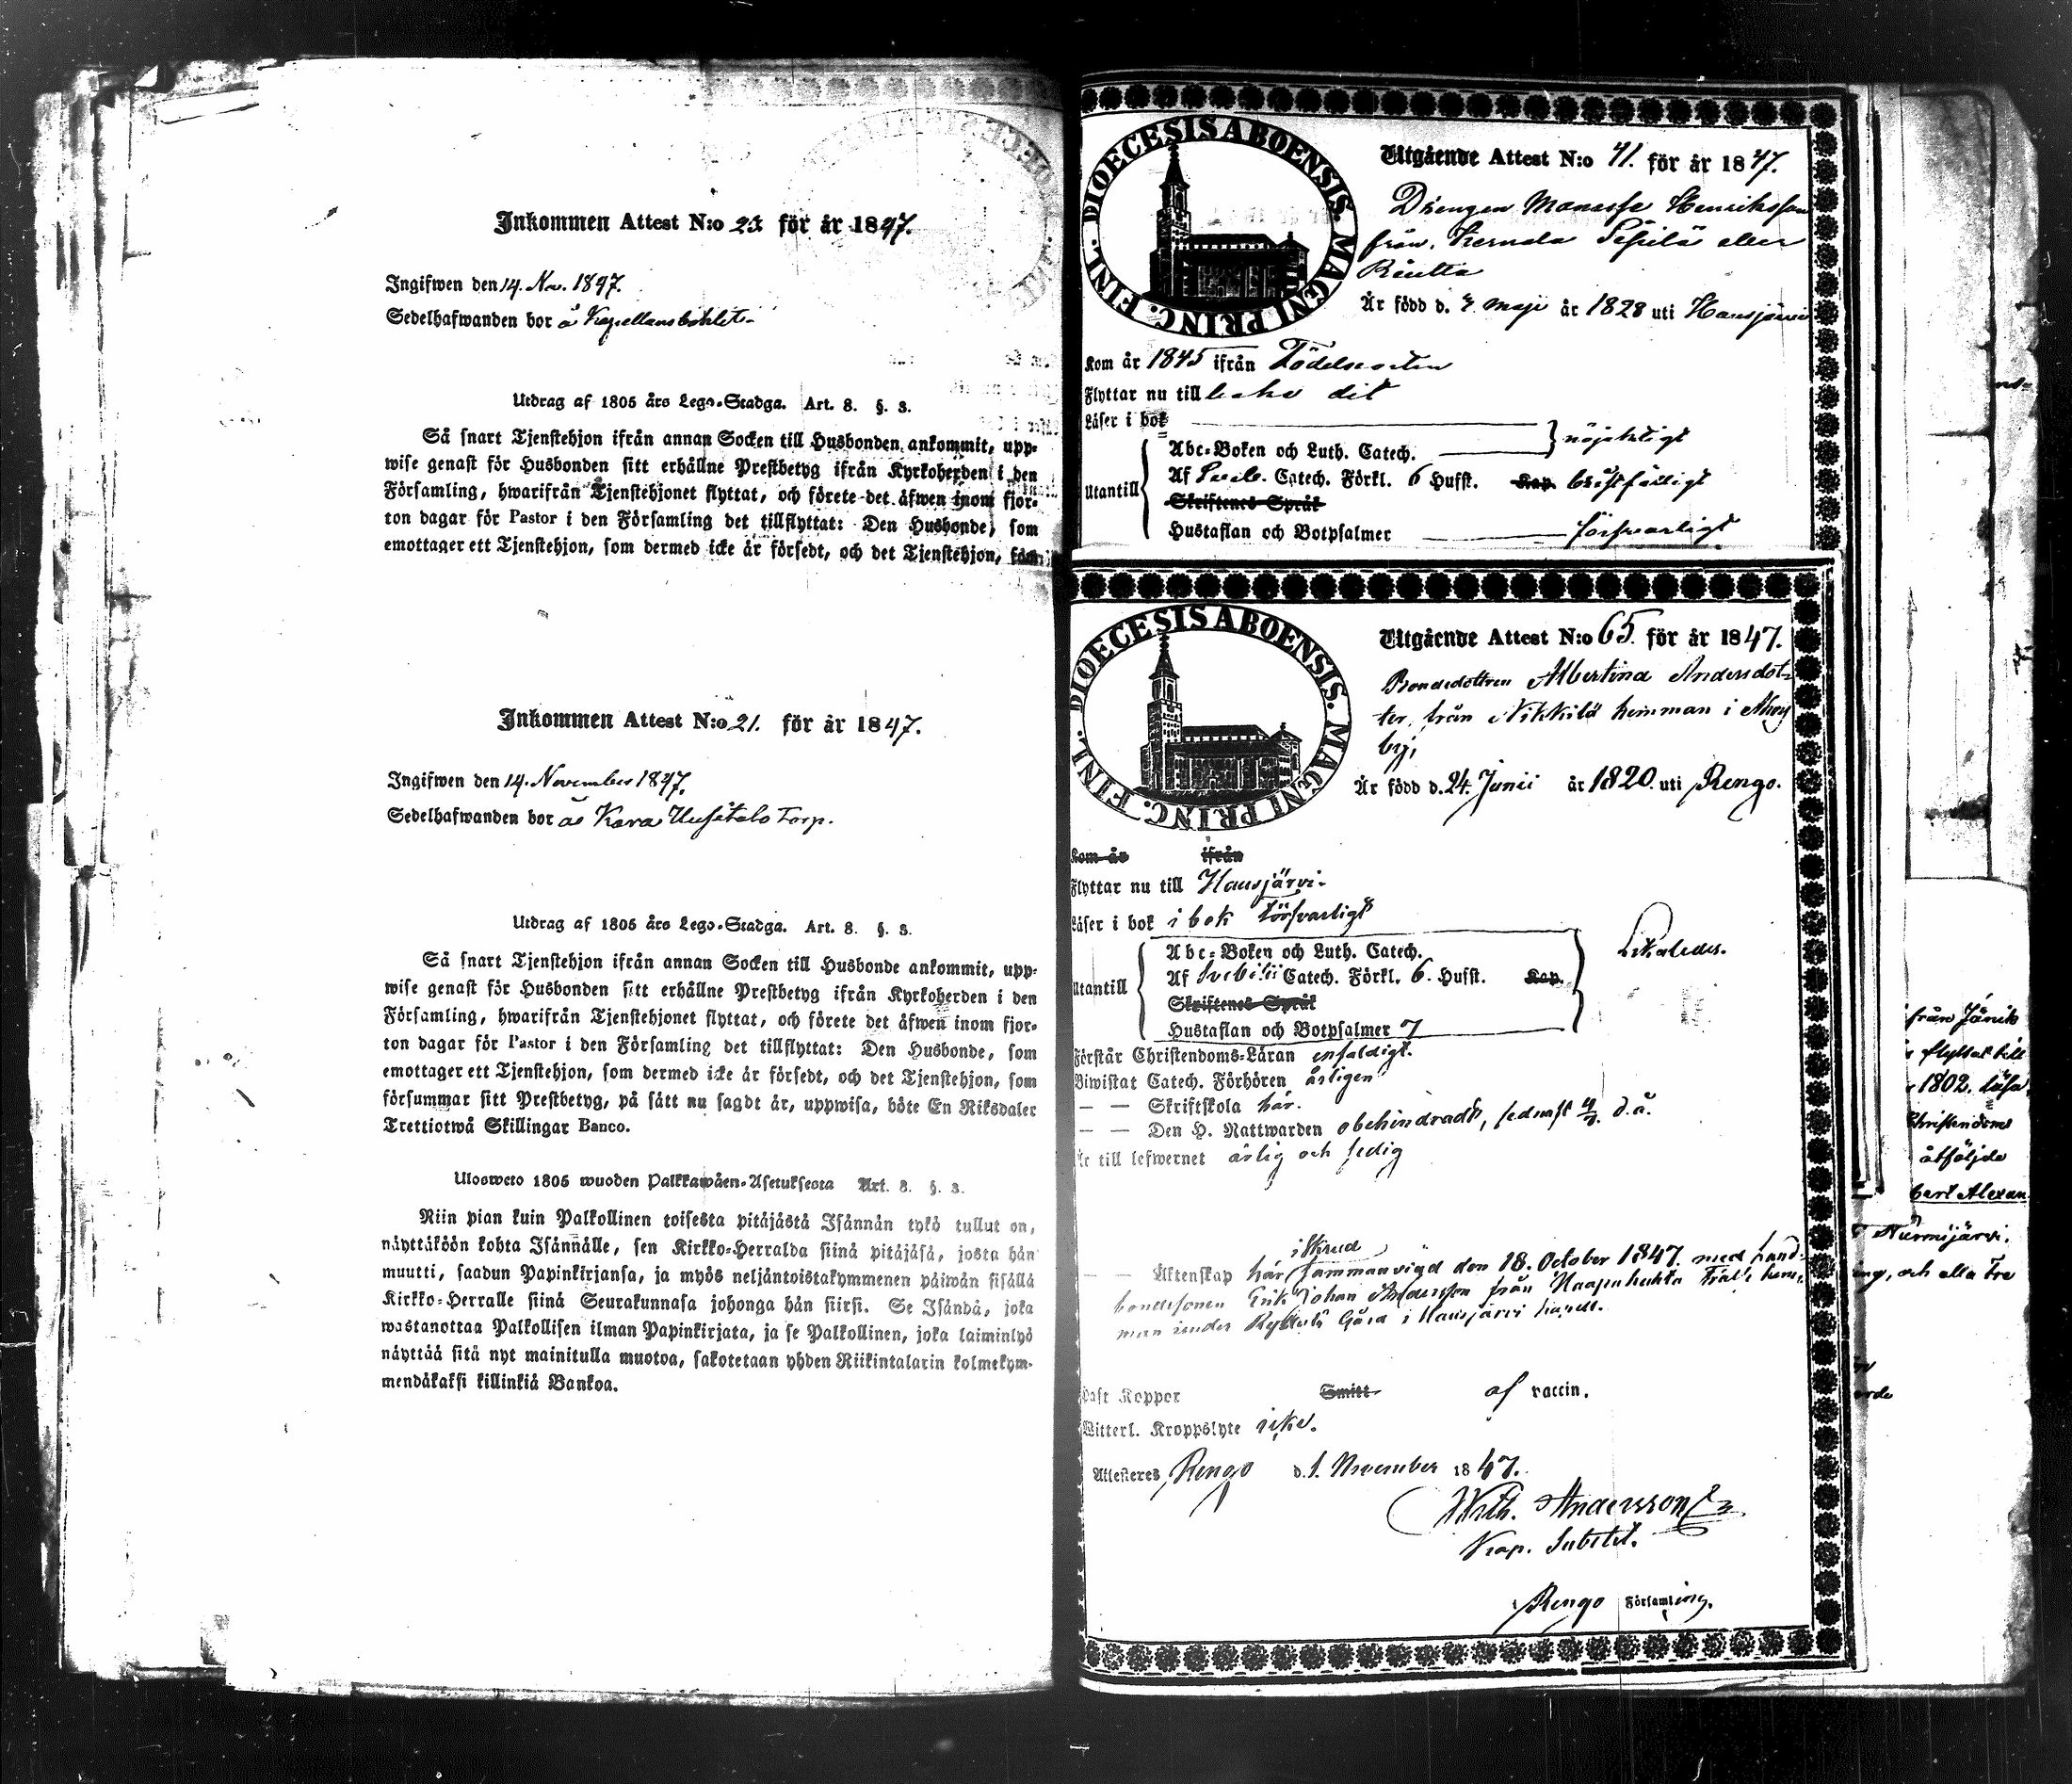 Inkommen Attest N:o 23 för år 1847.
Ingifwen den 14. Nov. 1847.
Sedelhafwanden bor å Kapellansbohlet.
Utdrag af 1805 års Lego-Stadga. Art. 8. §. 3.
Så snart Tjenstehjon ifrån annan Socken till Husbonden ankommit, upp-
wise genast för Husbonden sitt erhållne Prestbetyg ifrån Kyrkoherden i den
Församling, hwarifrån Tjenstehjonet flyttat, och förete det äfwen inom fjor-
ton dagar för Pastor i den Församling det tillflyttat: Den Husbonde, som
emottager ett Tjenstehjon, som dermed icke är försedt, och det Tjenstehjon, som
Inkommen Attest N:o 21. för år 1847.
Ingifwen den 14. November 1847.
Sedelhafwanden bor å Kara Uusitalo Torp.
Utdrag af 1805 års Lego-Stadga. Art. 8. §. 3.
Så snart Tjenstehjon ifrån annan Socken till Husbonde ankommit, upp-
wise genast för Husbonden sitt erhållne Prestbetyg ifrån Kyrkoherden i den
Församling, hwarifrån Tjenstehjonet flyttat, och förete det äfwen inom fjor-
ton dagar för Pastor i den Församling det tillflyttat: Den Husbonde, som
emottager ett Tjenstehjon, som dermed icke är försedt, och det Tjenstehjon, som
försummar sitt Prestbetyg, på sätt nu sagdt är, uppwisa, böte En Riksdaler
Trettiotwå Skillingar Banco.
Ulosweto 1805 wuoden Palkkawäen-Asetuksesta Art. 8. §. 3.
Niin pian kuin Palkollinen toisesta pitäjästä Isännän tykö tullut on,
näyttäköön kohta Isännälle, sen Kirkko-Herralda siinä pitäjäsä, josta hän
muutti, saadun Papinkirjansa, ja myös neljäntoistakymmenen päiwän sisällä
Kirkko-Herralle siinä Seurakunnasa johonga hän siirsi. Se Isändä, joka
wastanottaa Palkollisen ilman Papinkirjata, ja se Palkollinen, joka laiminlyö
näyttää sitä nyt mainitulla muotoa, sakotetaan yhden Riikintalarin kolmekym-
mendäkaksi killinkiä Bankoa.
DIOECESIS ABOENSIS. MAGNI PRINC. FINL.
Utgående Attest N:o 41. för år 1847.
Drengen Manasse Henriksson
från Kernala Seppilä eller
Räutta
Är född d. 4 maji år 1828 uti Hausjärvi
Kom år 1845 ifrån Födelseorten
Flyttar nu till dit
Läser i bok
Abc-Boken och Luth. Catech. nöjaktigt
Utantill Af Sveb. Catech. Förkl. 6 Hufst. Kap. bristfälligt
Skriftenes Språk
Hustaflan och Botpsalmer försvarligt
DIOECESIS ABOENSIS. MAGNI PRINC. FINL.
Utgående Attest N:o 65. för år 1847.
Bondedottren Albertina Andersdot-
ter, från Nikkilä hemman i
by,
Är född d. 24. Junii år 1820. uti Rengo.
Kom år ifrån
Flyttar nu till Hausjärvi.
Läser i bok i bok försvarligt
Abc-Boken och Luth. Catech. Likaledes.
Utantill Af Svebilii Catech. Förkl. 6. Hufst. Kap.
Skriftenes Språk
Hustaflan och Botpsalmer 7
Förstår Christendoms-Läran enfaldigt.
Biwistat Catech. Förhören årligen
— — Skriftskola här.
— — Den H. Nattwarden obehindradt, sednast d.å.
Är till lefwernet ärlig och sedig
i Skrud
— — Äktenskap här sammanvigd den 18. October 1847. med
bondesonen Erik Johan Andersson från Haapahuhta hem-
man under Gård i Hausjärvi
Haft Koppor Smitt af vaccin.
Witterl. Kroppslyte icke.
Attesteras Rengo d. 1. November 1847.
Wilh. Andersson
Kap. Substit.
Rengo Församling.
från Jänis
flyttat till
1802. läser
Christendoms
åtföljde
bert Alexan
Nurmijärvi.
och alla tre